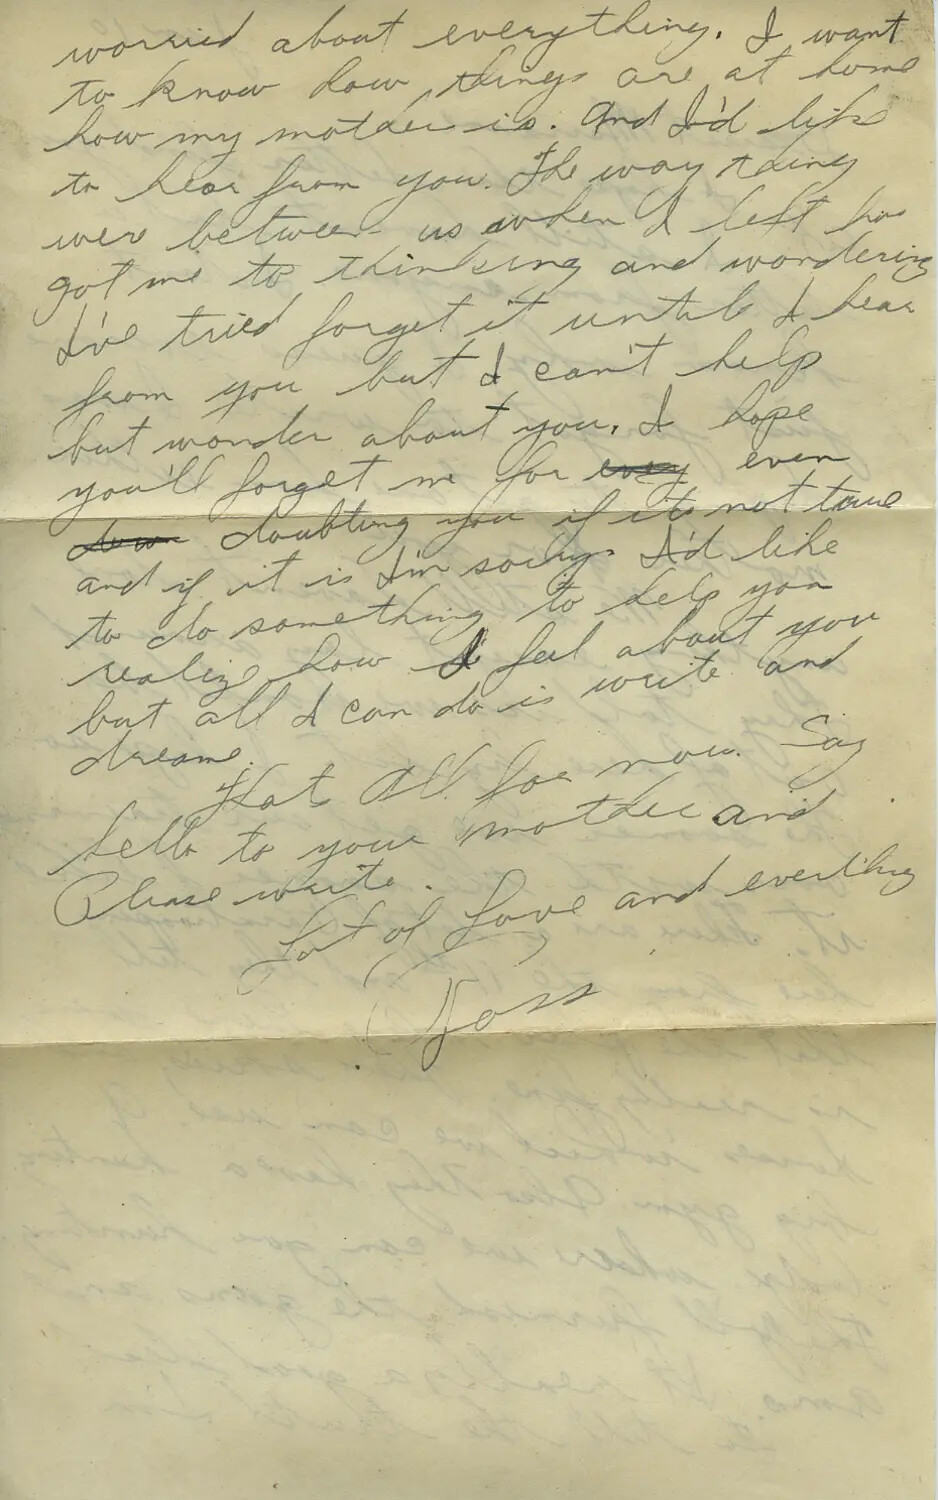 worried about everything. I want
to know how things are at home
how my mother is. And I'd like
to hear from you. The way thing
were between us when I left has
got me to thinking and wondering
I've tried forget it until I hear
from you but I can't help
but wonder about you. I hope
you'll forget me for even
doubting you if its not true
and if it is I'm sorry. I'd like
to do something to help you
realize how I feel about you
but all I can do is write and
dream.
That All for now. Say
hello to your mother and
Please write.
Lot of Love and everthing
Ross